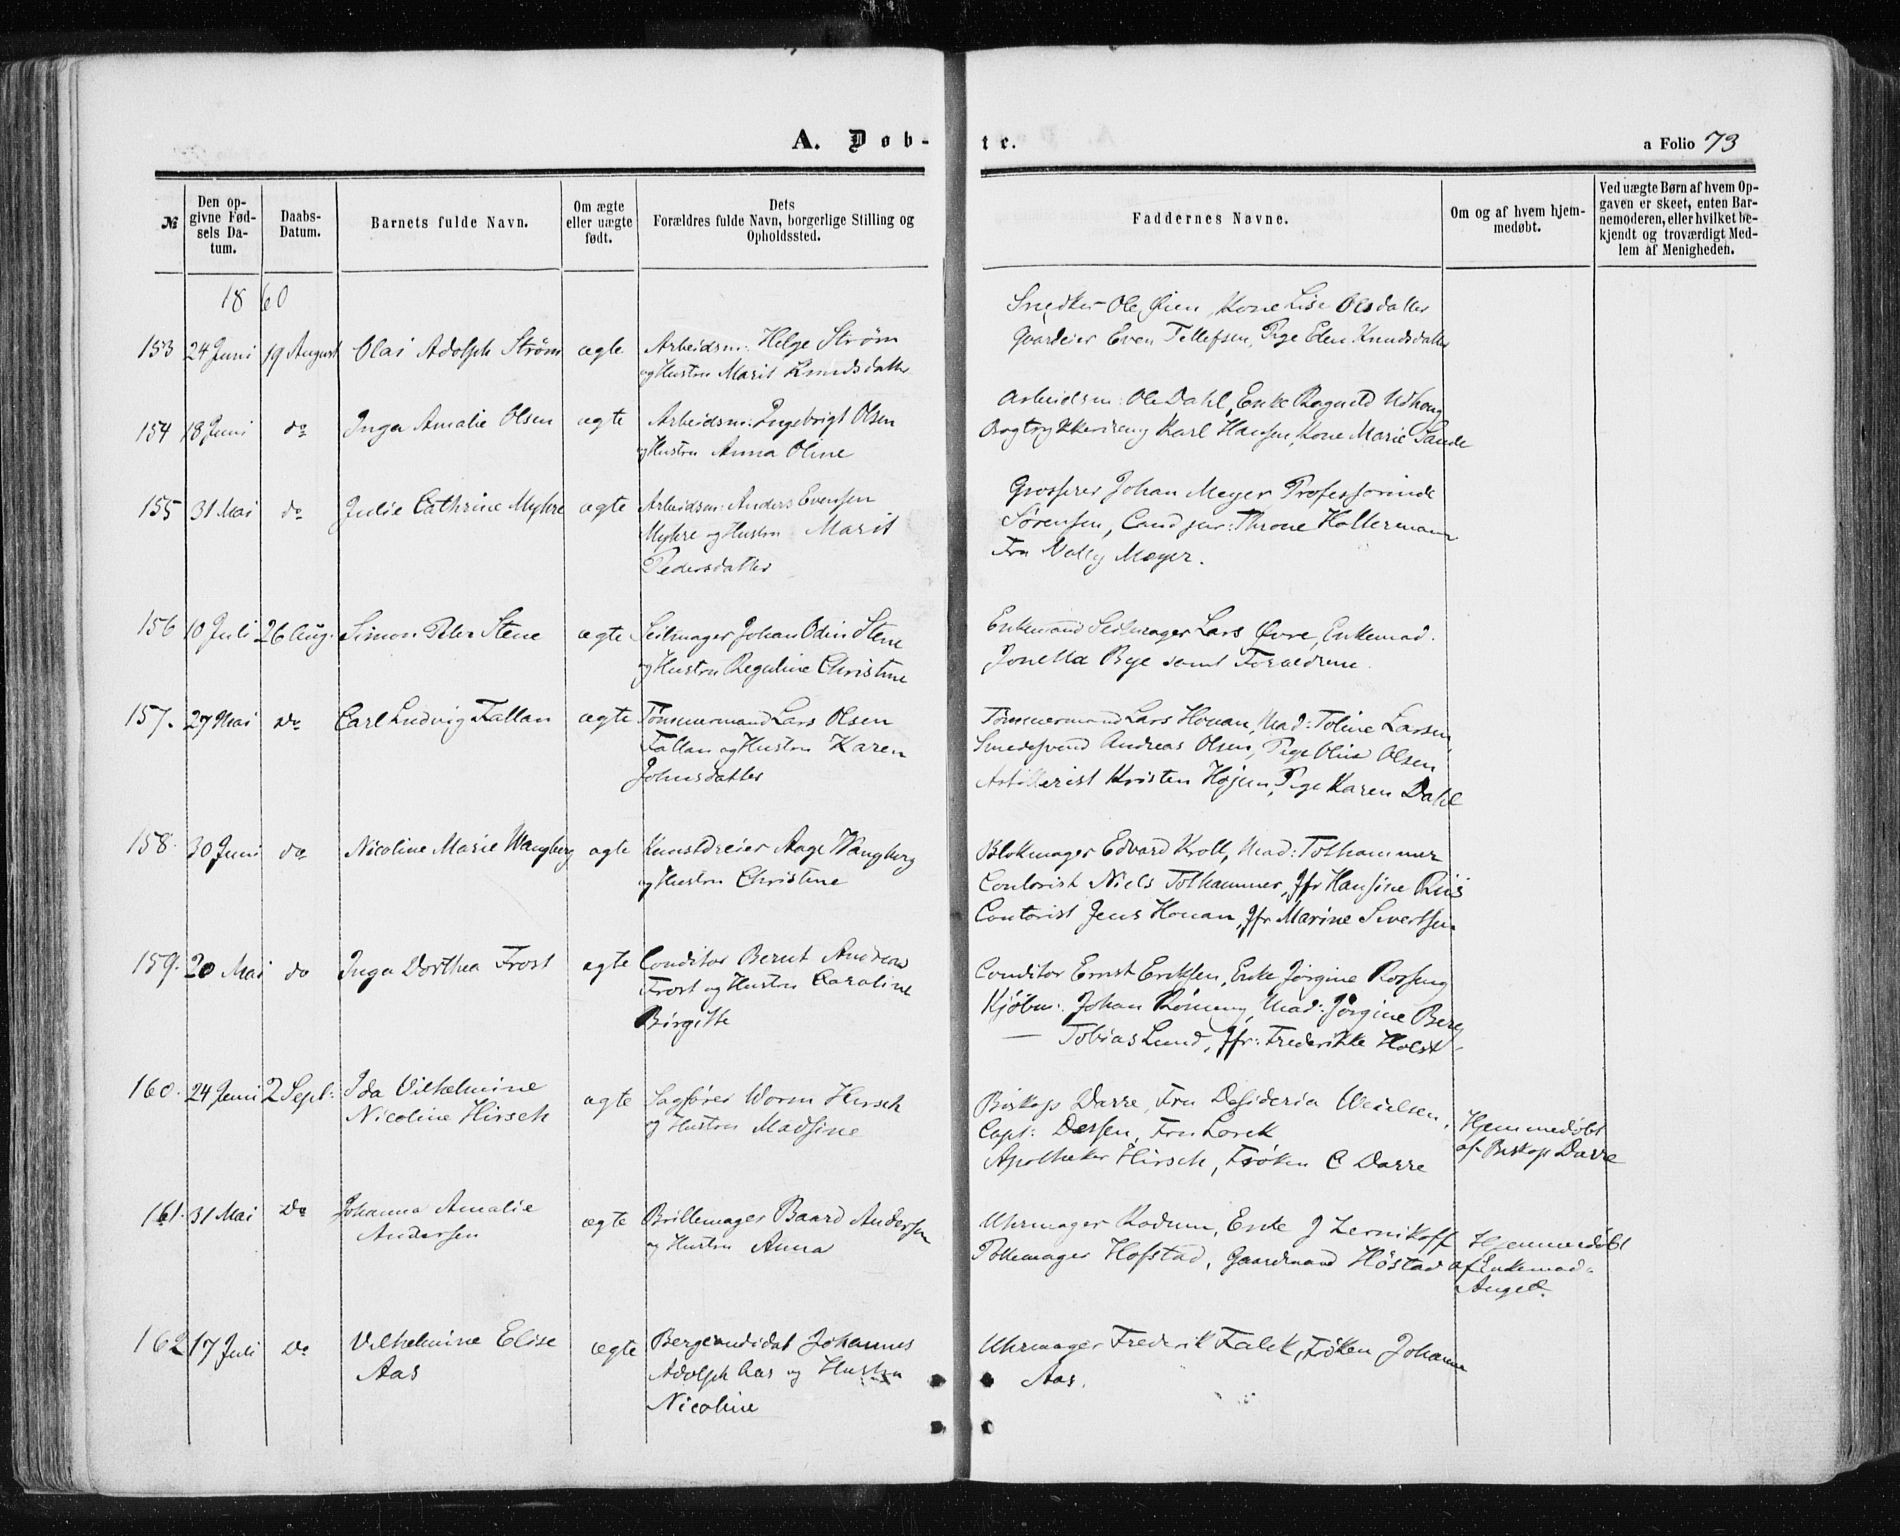 A. Døb-
te.
a Folio 73
№
Den opgivne Fødsels Datum.
Daabs-Datum.
Barnets fulde Navn.
Om ægte eller uægte født.
Dets Forældres fulde Navn, borgerlige Stilling og Opholdssted.
Faddernes Navne.
Om og af hvem hjemmedøbt.
Ved uægte Børn af hvem Opgaven er skeet, enten Barnemoderen, eller hvilket bekjendt og troværdigt Medlem af Menigheden.
1860
153 24 Juni 19 August Olai Adolph Strøm ægte Arbeidsm: Helge Strøm
og Hustru Marit Knudsdatter
Snedker Ole Øien, Kone Lise Olsdatter
Gaardeier Even Tellefsen, Pige Elen Knudsdatter
154 18 Juni do Inga Amalie Olsen ægte Arbeidsm: Ingebrigt Olsen
og Hustru Anna Oline
Arbeidsm: Ole Dahl, Enke Ragnild Udhoug
Bogtrykkersvend Karl Hansen, Kone Marie Sande
155 31 Mai do Julie Cathrine Myhre ægte Arbeidsm: Anders Evensen
Myhre og Hustru Marit
Pedersdatter
Grosserer Johan Meyer Professorinde
Sørensen, Cand jur: Throne Holtermann
Fru Nelly Meyer.
156 10 Juli 26 Aug. Simon Peter Stene ægte Seilmager Johan Odin Stene
og Hustru Reguline Christine
Enkemand Seilmager Lars Øvre, Enkemad.
Jonetta Bye samt Forældrene.
157. 27 Mai do Carl Ludvig Fallan ægte Tømmermand Lars Olsen
Fallan og Hustru Karen
Johnsdatter
Tømmermand Lars Houan, Mad: Toline Larsen,
Smedesvend Andreas Olsen, Pige Olina Olsen
Artillerist Kristen Højem, Pige Karen Dahl
158. 30 Juni do Nicoline Marie Wangberg ægte Kunstdreier Aage Wangberg
og Hustru Christine
Blokmager Edvard Kroll, Mad: Tolhammer
Contorist Niels Tolhammer, Jfr Hansine Riis
Contorist Jens Houan, Jfr Marine Sivertsen
159. 20 Mai do Inga Dorthea Frost ægte Conditor Bernt Andreas
Frost og Hustru Caroline
Birgitte
Conditor Ernst Eriksen, Enke Jørgine
Kjøbm: Johan Mad: Jørgine Berg
— Tobias Lund, Jfr: Frederikke Holst
160. 24 Juni 2 Sept: Ida Vilhelmine
Nicoline Hirsch
ægte Sagfører Worm Hirsch
og Hustru Madsine
Biskop Darre, Fru Desideria
Capt: Dessen, Fru Lorck
Apotheker Hirsch, Frøken C Darre
Hjemmedøbt
af Biskop Darre
161. 31 Mai Do Johanna Amalie
Andersen
ægte Brillemager Baard Andersen
og Hustru Anna
Uhrmager Kodum, Enke J Lernikoff
Pottemager Hofstad, Gaardmand Høstad
Hjemmedøbt
af Enkemad.
Angel.
162 17 Juli Do Vilhelmine Elise
Aas
ægte Bergcandidat Johannes
Adolph Aas og Hustru
Nicoline
Uhrmager Frederik Falck, Frøken Johanna
Aas.